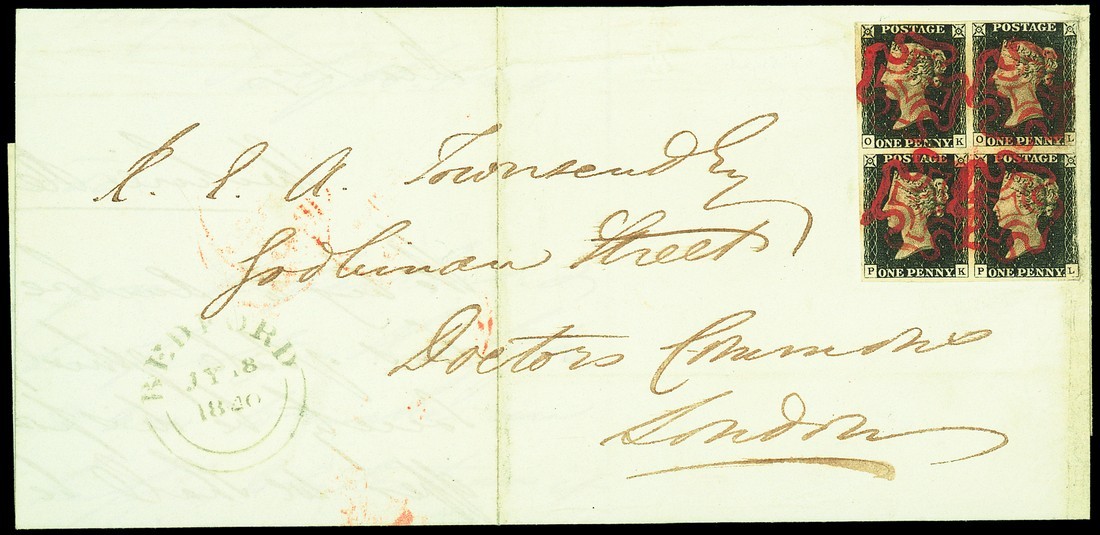 POSTAGE POSTAGE
O ONE PENNY K O ONE PENNY L
POSTAGE POSTAGE
P ONE PENNY K P ONE PENNY L
Townsend Esq
Godliman Street
Doctors Commons
London
BEDFORD
JY 18
1840